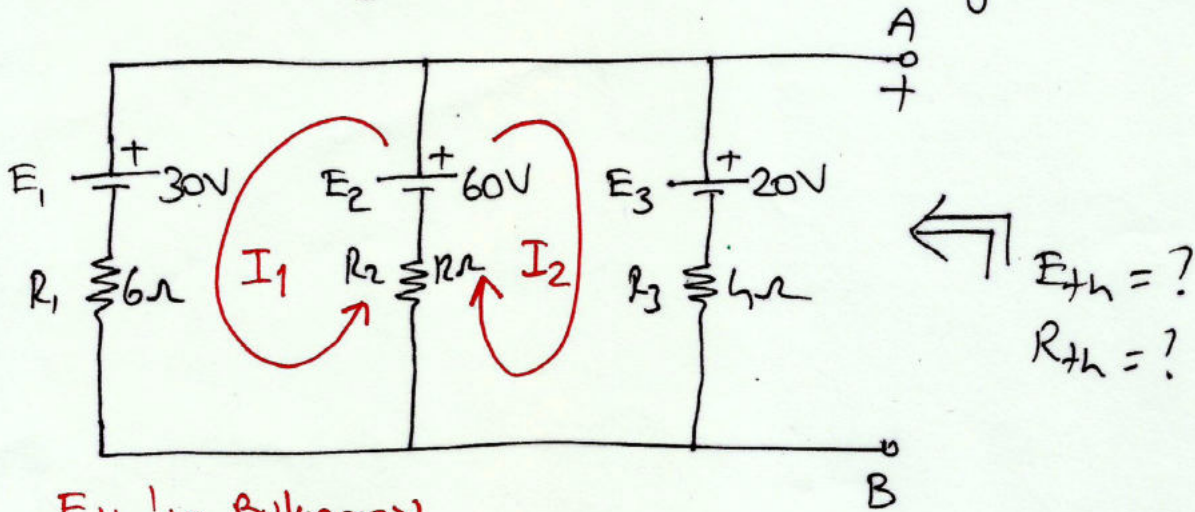 A
+
E₁ + 30V E₂ + 60V E₃ + 20V
R₁ 6Ω I₁ R₂ 12Ω I₂ R₃ 4Ω
Eth = ?
Rth = ?
B